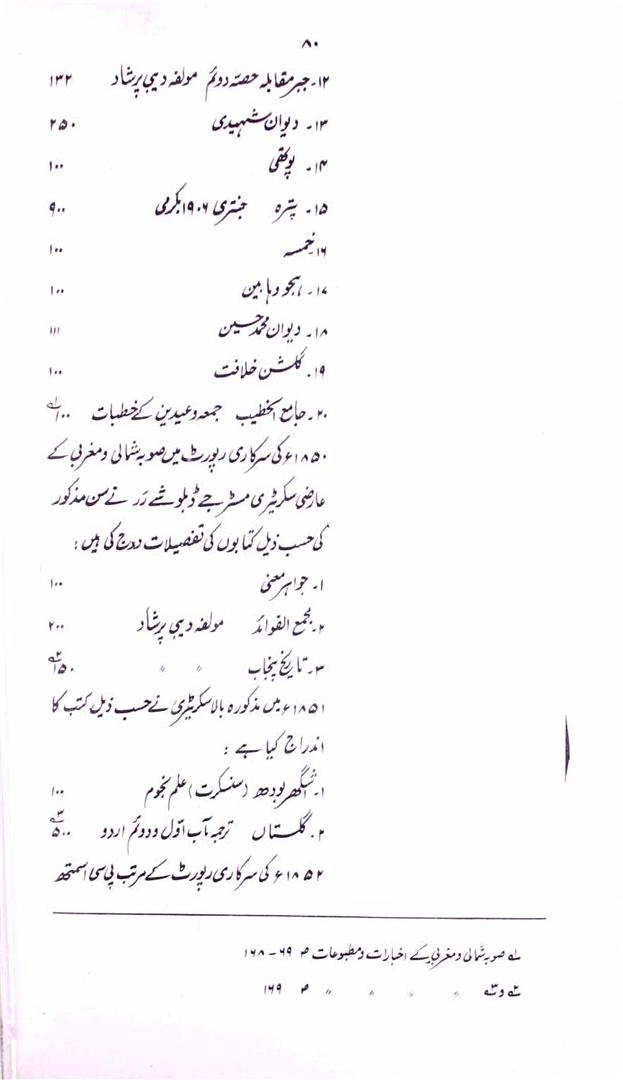 ۸۰
۱۲۔ جبر مقابلہ حصّہ دوئم مولفہ دیبی پرشاد ۱۳۲
۱۳۔ دیوان شہیدی ۲۵۰
۱۴۔ پوتھی ۱۰۰
۱۵۔ پترہ جنتری ۱۹۰۶ بکرمی ۹۰۰
۱۶ خمسہ ۱۰۰
۱۷۔ ہجو وہابین ۱۰۰
۱۸۔ دیوان محمد حسین ۱۱۱
۱۹۔ گلشن خلافت ۱۰۰
۲۰۔ جامع الخطیب جمعہ وعیدین کے خطبات ۱۰۰ ؎۱
۱۸۵۰ء کی سرکاری رپورٹ میں صوبہ شمالی ومغربی کے
عارضی سکرٹیری مسٹر جے ڈبلو شے رر نے سن مذکور
کی حسب ذیل کتابوں کی تفصیلات درج کی ہیں :
۱۔ جواہر معنی ۱۰۰
۲۔ مجمع الفوائد مولفہ دیبی پرشاد ۲۰۰
۳۔ تاریخ پنجاب ″ ″ ۱۵۰ ؎۲
۱۸۵۱ء میں مذکورہ بالا سکرٹیری نے حسب ذیل کتب کا
اندراج کیا ہے :
۱۔ بودھ (سنسکرت) علم نجوم ۱۰۰
۲۔ گلستاں ترجمہ باب اوّل ودوئم اردو ۵۰۰ ؎۳
۱۸۵۲ء کی سرکاری رپورٹ کے مرتب پی سی اسمتھ
؎۱ صوبہ شمالی ومغربی کے اخبارات ومطبوعات ص ۶۹ - ۱۶۸
؎۲ و ؎۳ ″ ″ ″ ″ ص ۱۶۹